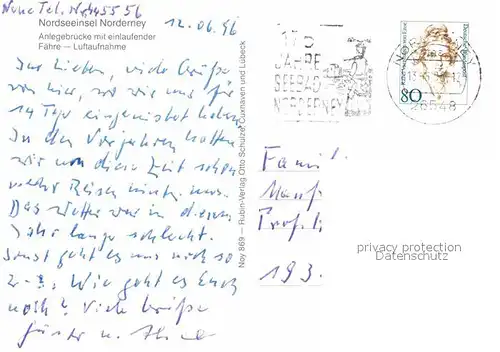 Neue Tel. Nr. 445556
Nordseeinsel Norderney
12.06.96
Anlegebrücke mit einlaufender
Fähre — Luftaufnahme
Ihr Lieben, viele Grüße
von hier, wo wir uns für
14 Tage eingenistet haben.
In den Vorjahren hatten
wir um diese Zeit schon
Reisen hinter uns.
Das Wetter war in diesem
Jahr lange schlecht.
Sonst geht es uns noch so
la-la. Wie geht es Euch
noch? Viele Grüße
Günter u.
Noy 869 — Rubin-Verlag Otto Schulze Cuxhaven und Lübeck
175
JAHRE
SEEBAD
NORDERNEY
80
26548
Famil
Manf
Prof.
193.
privacy protection
Datenschutz